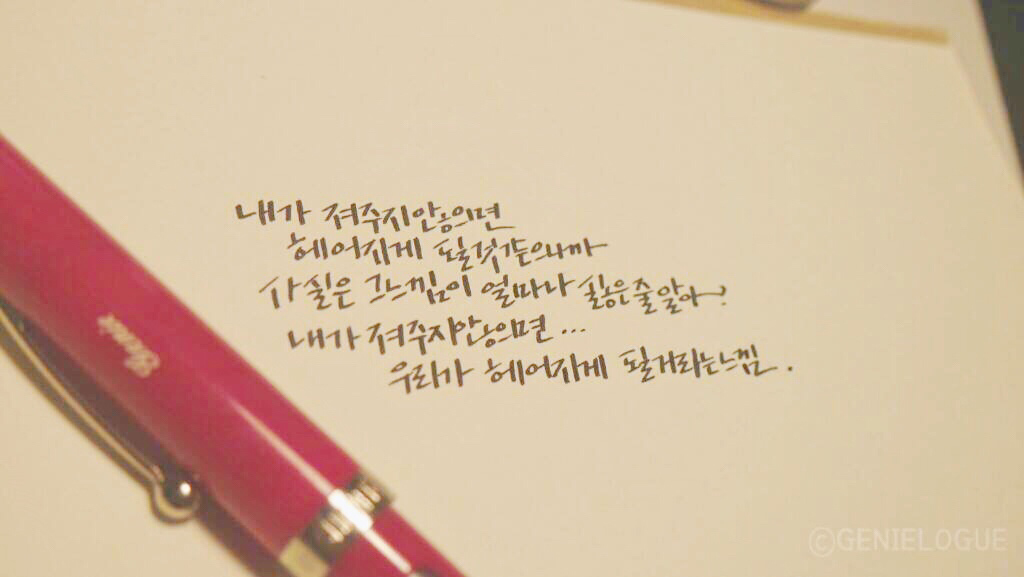 내가 져주지않으면
헤어지게 될것같으니까
사실은 그느낌이 얼마나 싫은줄알아?
내가 져주지않으면...
우리가 헤어지게 될거라는느낌.
©GENIELOGUE